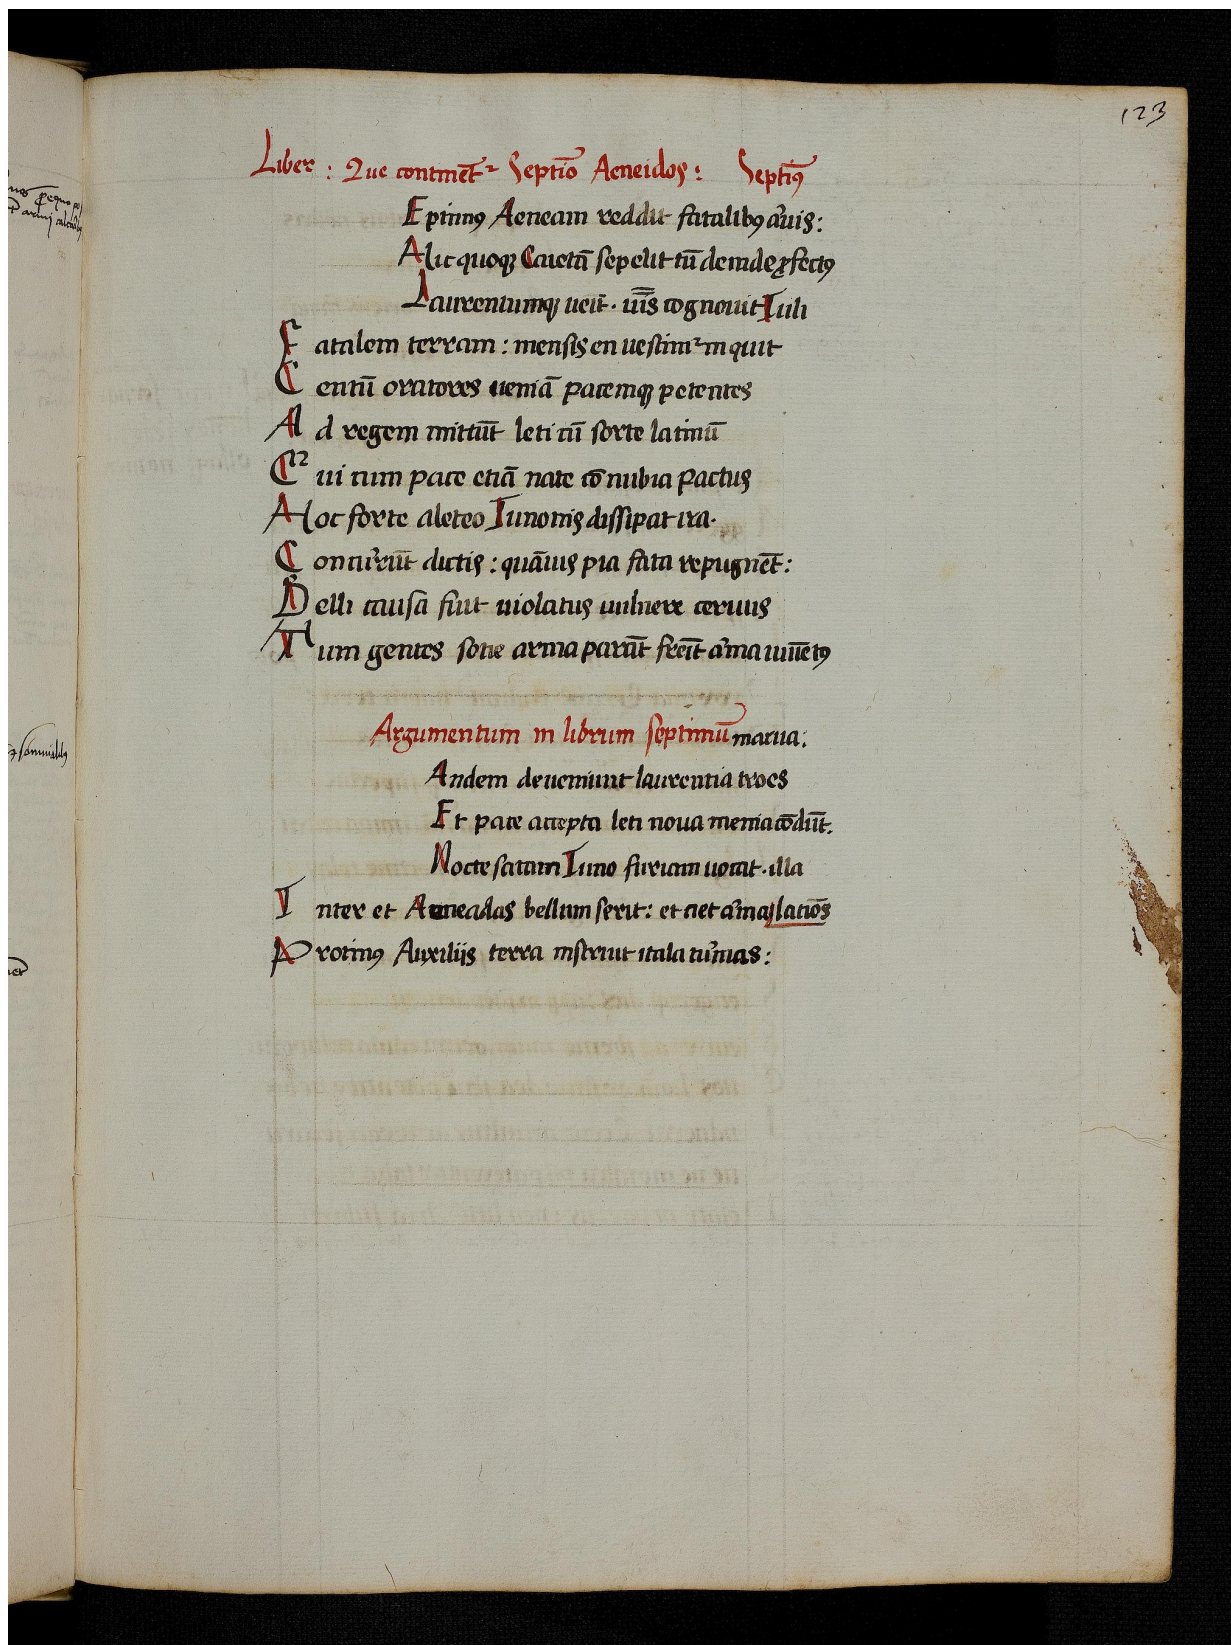 123
Liber : Que continet̃ᷣ Septĩo Aeneidos : Septiꝰ
Eptimꝰ Aeneam reddit fatalibꝰ aruis :
Hic quoqꝫ Caietã sepelit tũ deinde ꝓfectꝰ
Laurentumqꝫ ueit · uĩs cognouit Iuli
F atalem terram : mensis en uescimᷣ inquit
C entũ oratores ueniã pacemqꝫ petentes
A d regem mittũt leti cũ sorte latinũ
C ui cum pace etiã nate cõnubia pactus
H oc forte aleto Iunonis dissipat ira ·
C oncurrũt dictis : quãuis pia fata repugnẽt :
B elli causa fuit uiolatus uulnere ceruus
T um gentes socie arma parãt frẽit arma iuuẽtꝰ
Argumentum in librum septimũ
Andem deueniunt laurentia troes
Et pace accepta leti noua menia cõdũt.
Nocte satam Iuno furiam uocat · illa
I nter et Aeneadas bellum serit : et ciet arma latiõs
P rotinꝰ Auxilijs terra instruit itala turmas :